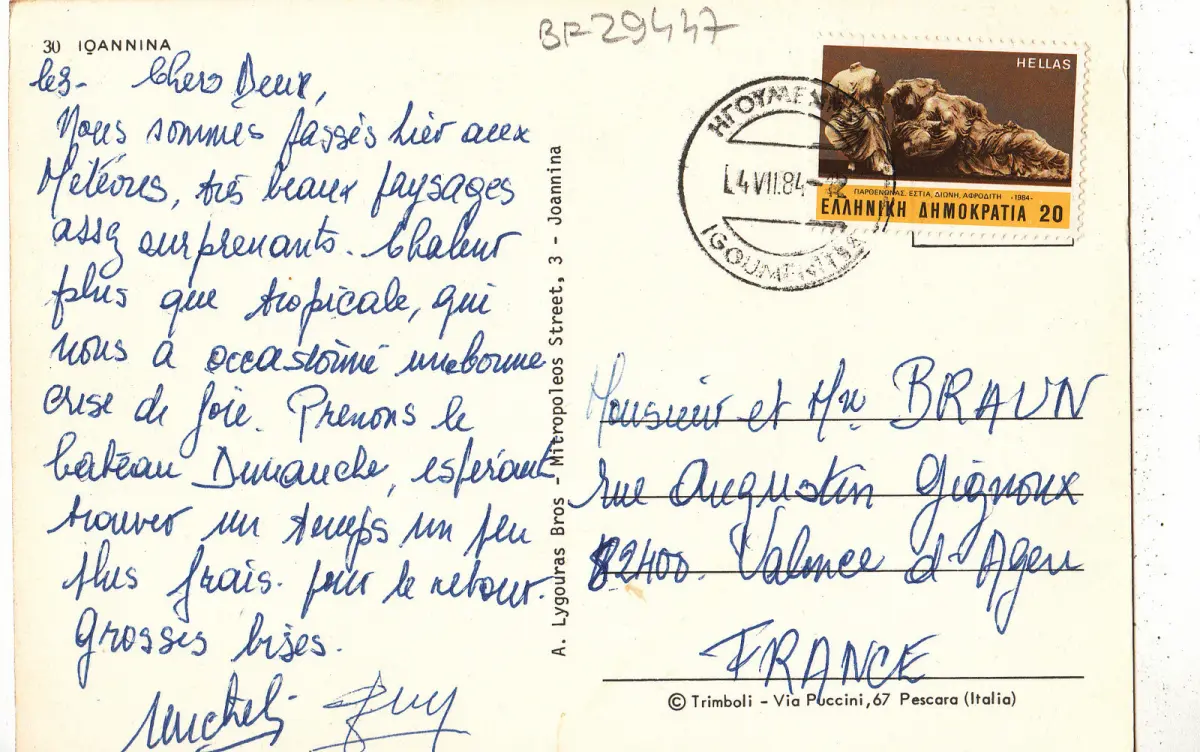 BR29447
30 IOANNINA
les- Chers Deux,
Nous sommes passés hier aux
Météores, très beaux paysages
assez surprenants. Chaleur
plus que tropicale, qui
nous a occasionné une bonne
crise de foie. Prenons le
bateau Dimanche, espérant
trouver un temps un peu
plus frais pour le retour.
Grosses bises.
Guy
A. Lygouras Bros - Mitropoleos Street, 3 - Joannina
HELLAS
ΠΑΡΘΕΝΩΝΑΣ, ΕΣΤΙΑ, ΔΙΩΝΗ, ΑΦΡΟΔΙΤΗ -1984-
ΕΛΛΗΝΙΚΗ ΔΗΜΟΚΡΑΤΙΑ 20
4 VII.84
IGOUMENITSA
Monsieur et Mme BRAUN
rue Augustin Gignoux
82400. Valence d'Agen
FRANCE
© Trimboli - Via Puccini, 67 Pescara (Italia)